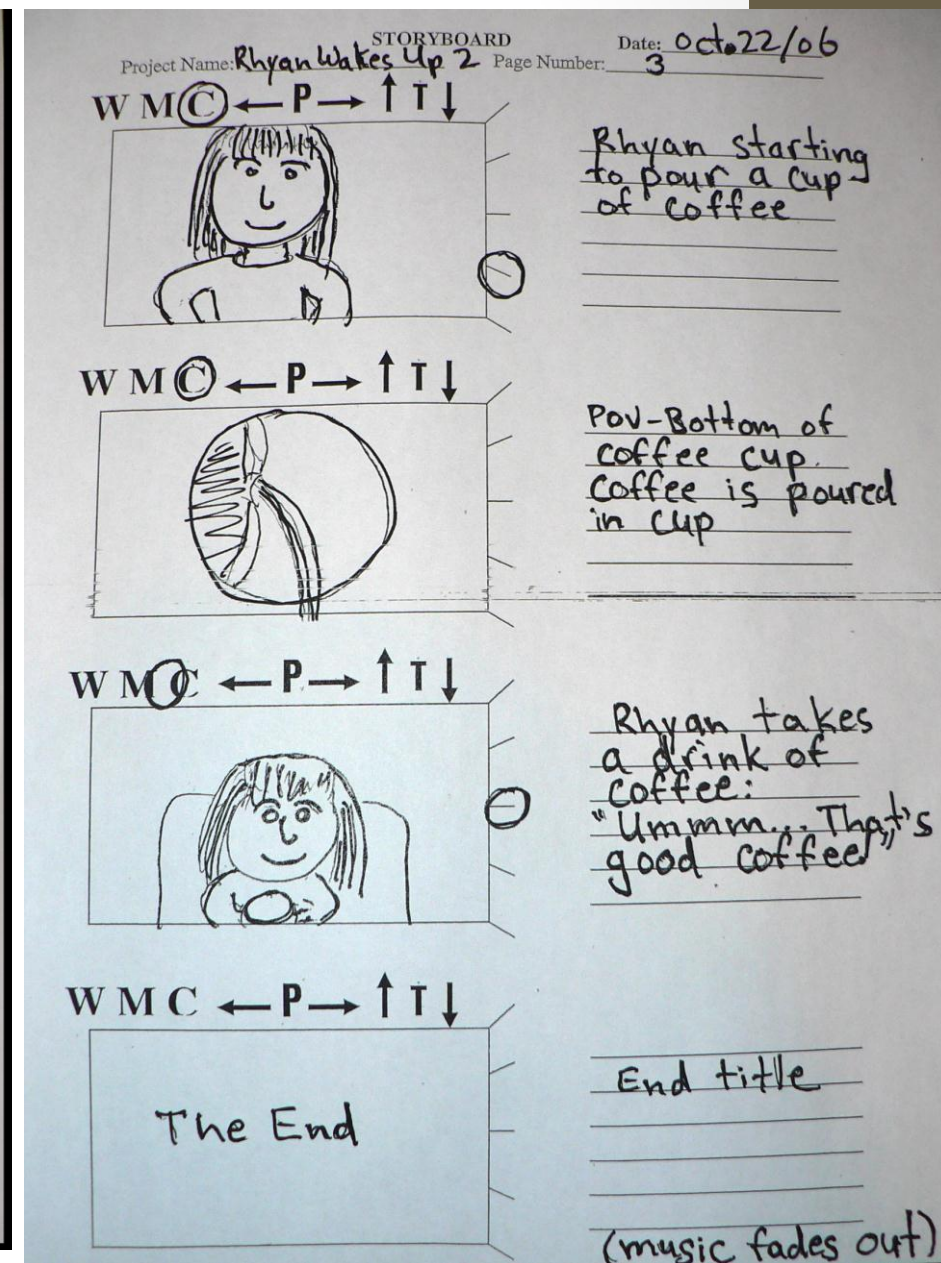 STORYBOARD
Project Name: Rhyan Wakes Up 2 Page Number: 3 Date: Oct.22/06
W M C ← P → ↑ T ↓
Rhyan starting
to pour a cup
of coffee
W M C ← P → ↑ T ↓
POV-Bottom of
coffee cup.
Coffee is poured
in cup
W M C ← P → ↑ T ↓
Rhyan takes
a drink of
coffee:
"Ummm... That's
good coffee"
W M C ← P → ↑ T ↓
The End
End title
(music fades out)